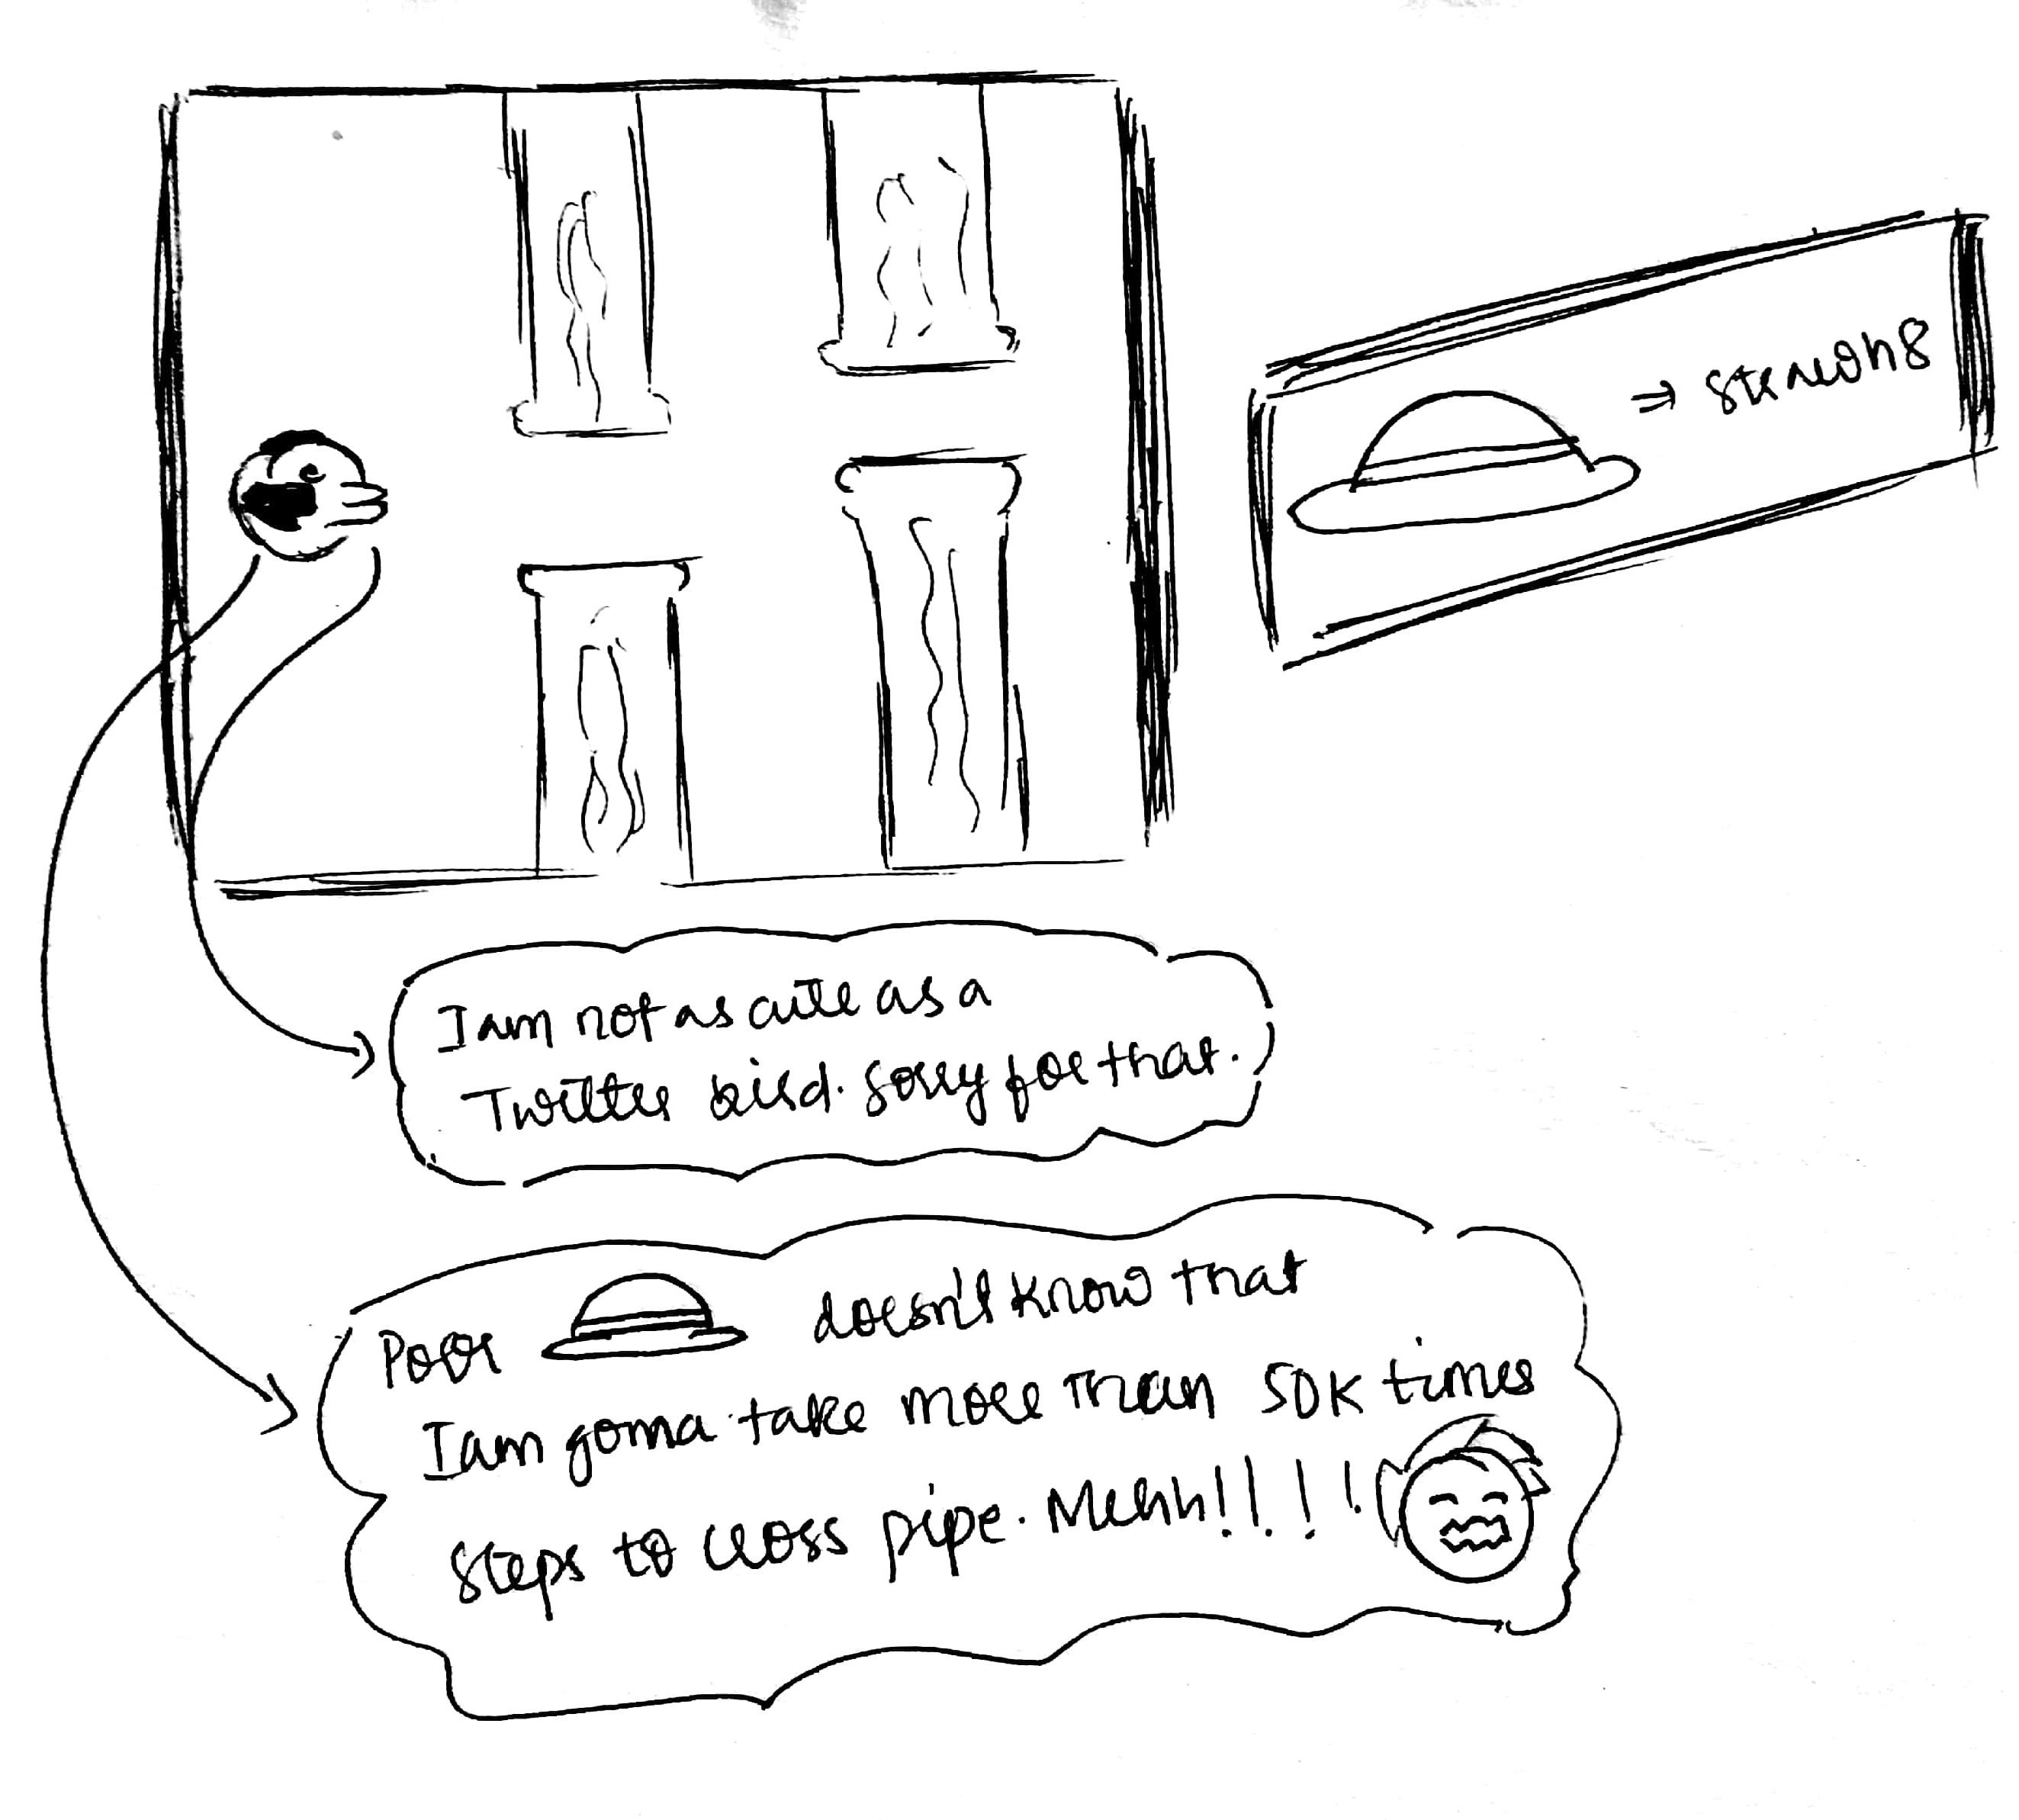 ⇒ strawh8
I am not as cute as a
Twitter bird. Sorry for that.
Poor doesn't know that
I am gonna take more than 50K times
steps to cross pipe. Mehh!!!!